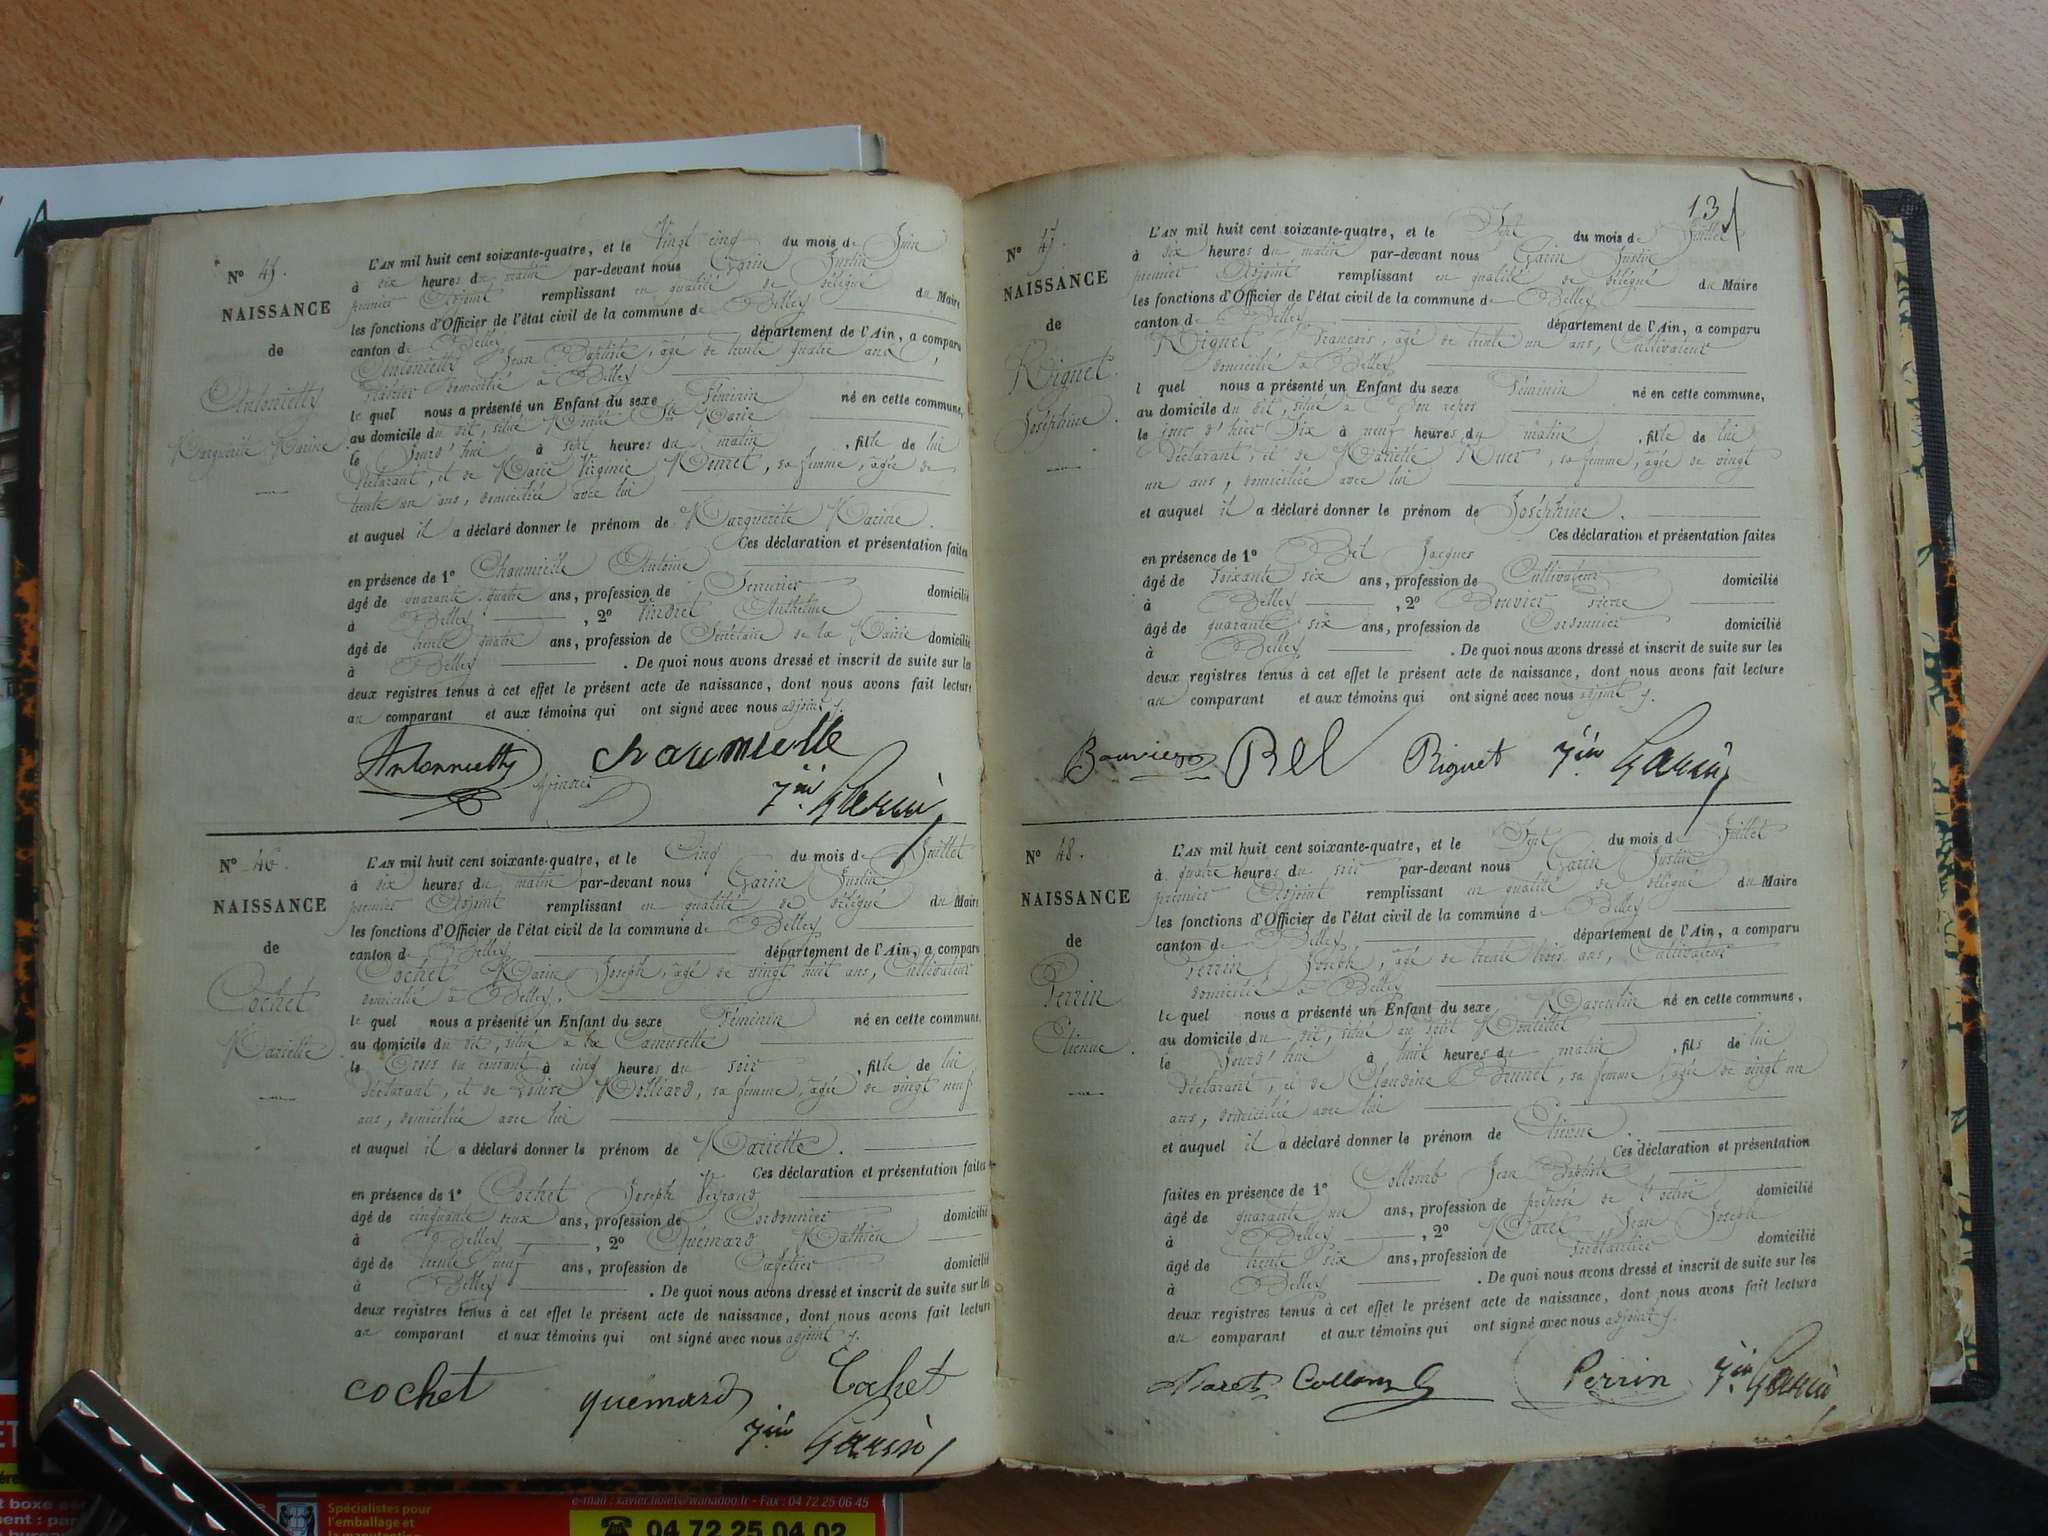 N° 45.
NAISSANCE
de
Antonietty
Marguerite Marine
L'AN mil huit cent soixante-quatre, et le Vingt cinq du mois de Juin
à six heures du matin par-devant nous Garin Justin
premier Adjoint remplissant en qualité de délégué du Maire
les fonctions d'Officier de l'état civil de la commune de Belley
canton de Belley département de l'Ain, a comparu
Antonietty Jean Baptiste, âgé de trente quatre ans,
domicilié à Belley
le quel nous a présenté un Enfant du sexe Féminin né en cette commune,
au domicile du dit, situé Ste Marie
le Jourd'hui à sept heures du matin, fille de lui
déclarant, et de Marie Virginie, sa femme, âgée de
trente un ans, domiciliée avec lui
et auquel il a déclaré donner le prénom de Marguerite Marine.
Ces déclaration et présentation faites
en présence de 1° Chaumielle Antoine
âgé de quarante quatre ans, profession de Serrurier domicilié
à Belley, 2° Vindret Anthelme
âgé de trente quatre ans, profession de Secrétaire de la Mairie domicilié
à Belley. De quoi nous avons dressé et inscrit de suite sur les
deux registres tenus à cet effet le présent acte de naissance, dont nous avons fait lecture
au comparant et aux témoins qui ont signé avec nous adjoint
Antonietty Chaumielle
Vindret Jin Garin
N° 46.
NAISSANCE
de
Cochet
Mariette.
L'AN mil huit cent soixante-quatre, et le Cinq du mois de Juillet
à six heures du matin par-devant nous Garin Justin
premier Adjoint remplissant en qualité de délégué du Maire
les fonctions d'Officier de l'état civil de la commune de Belley
canton de Belley département de l'Ain, a comparu
Cochet Marin Joseph, âgé de vingt huit ans, Cultivateur
domicilié à Belley.
le quel nous a présenté un Enfant du sexe Féminin né en cette commune,
au domicile du dit, situé à la Camusette
le Trois du courant à cinq heures du soir, fille de lui
déclarant, et de Louise Molliard, sa femme, âgée de vingt neuf
ans, domiciliée avec lui
et auquel il a déclaré donner le prénom de Mariette.
Ces déclaration et présentation faites
en présence de 1° Cochet Joseph Veyrand
âgé de cinquante deux ans, profession de Cordonnier domicilié
à Belley, 2° Quémard Mathieu
âgé de trente neuf ans, profession de Cafetier domicilié
à Belley. De quoi nous avons dressé et inscrit de suite sur les
deux registres tenus à cet effet le présent acte de naissance, dont nous avons fait lecture
au comparant et aux témoins qui ont signé avec nous adjoint
cochet quémard Cochet
Jin Garin
13
N° 47.
NAISSANCE
de
Riguet.
Joséphine.
L'AN mil huit cent soixante-quatre, et le Sept du mois de Juillet
à six heures du matin par-devant nous Garin Justin
premier Adjoint remplissant en qualité de délégué du Maire
les fonctions d'Officier de l'état civil de la commune de Belley
canton de Belley département de l'Ain, a comparu
Riguet François, âgé de trente un ans, Cultivateur
domicilié à Belley
l quel nous a présenté un Enfant du sexe Féminin né en cette commune,
au domicile du dit, situé à Bon repos
le jour d'hier Six à neuf heures du matin, fille de lui
déclarant, et de Mariette, sa femme, âgée de vingt
un ans, domiciliée avec lui
et auquel il a déclaré donner le prénom de Joséphine.
Ces déclaration et présentation faites
en présence de 1° Bel Jacques
âgé de soixante six ans, profession de Cultivateur domicilié
à Belley, 2° Bouvier Pierre
âgé de quarante six ans, profession de Cordonnier domicilié
à Belley. De quoi nous avons dressé et inscrit de suite sur les
deux registres tenus à cet effet le présent acte de naissance, dont nous avons fait lecture
au comparant et aux témoins qui ont signé avec nous adjoint
Bouvier Bel Riguet Jin Garin
N° 48.
NAISSANCE
de
Perrin
Etienne.
L'AN mil huit cent soixante-quatre, et le Sept du mois de Juillet
à quatre heures du soir par-devant nous Garin Justin
premier Adjoint remplissant en qualité de délégué du Maire
les fonctions d'Officier de l'état civil de la commune de Belley
canton de Belley département de l'Ain, a comparu
Perrin Joseph, âgé de trente trois ans, Cultivateur
domicilié à Belley
le quel nous a présenté un Enfant du sexe Masculin né en cette commune,
au domicile du dit, situé au petit Montillet
le Jourd'hui à huit heures du matin, fils de lui
déclarant, et de Claudine Brunet, sa femme, âgée de vingt un
ans, domiciliée avec lui
et auquel il a déclaré donner le prénom de Etienne.
Ces déclaration et présentation
faites en présence de 1° Collomb Jean Baptiste
âgé de quarante un ans, profession de préposé de l'octroi domicilié
à Belley, 2° Maret Jean Joseph
âgé de trente six ans, profession de ferblantier domicilié
à Belley. De quoi nous avons dressé et inscrit de suite sur les
deux registres tenus à cet effet le présent acte de naissance, dont nous avons fait lecture
au comparant et aux témoins qui ont signé avec nous adjoint
Maret Collomb Perrin Jin Garin
Spécialistes pour
l'emballage et
la manutention
e-mail : xavier.holet@wanadoo.fr - Fax : 04 72 25 06 45
☎ 04 72 25 04 02